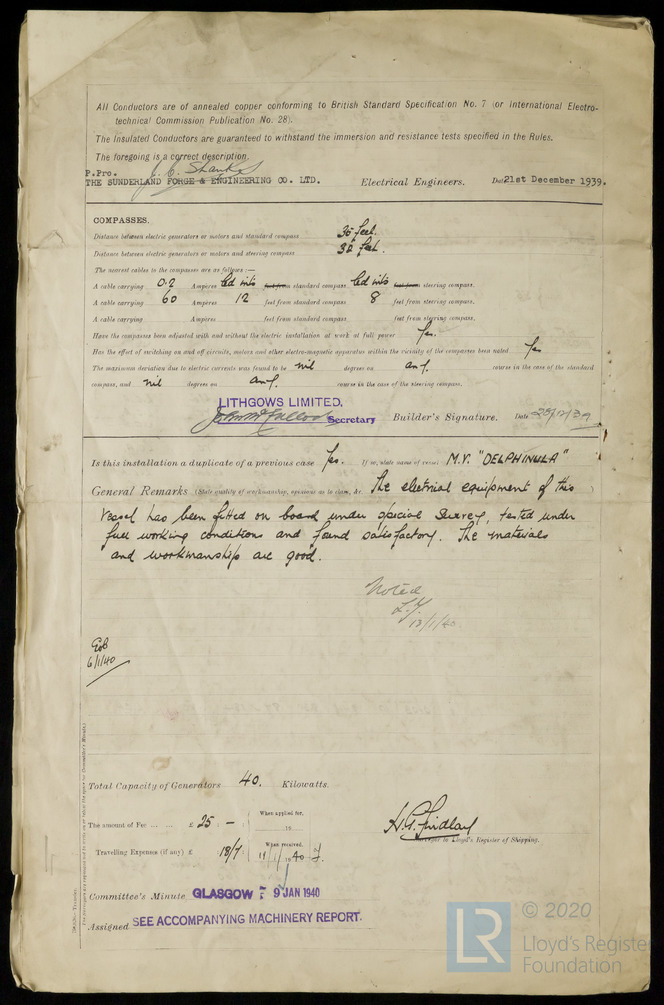 All Conductors are of annealed copper conforming to British Standard Specification No. 7 (or International Electro-
technical Commission Publication No. 28).
The Insulated Conductors are guaranteed to withstand the immersion and resistance tests specified in the Rules.
The foregoing is a correct description.
P.Pro.
THE SUNDERLAND FORGE & ENGINEERING CO. LTD. Electrical Engineers. Date 21st December 1939.
COMPASSES.
Distance between electric generators or motors and standard compass 35 feet.
Distance between electric generators or motors and steering compass 32 feet.
The nearest cables to the compasses are as follows :—
A cable carrying 0.2 Amperes led into feet from standard compass led into feet from steering compass.
A cable carrying 60 Amperes 12 feet from standard compass 8 feet from steering compass.
A cable carrying Amperes feet from standard compass feet from steering compass.
Have the compasses been adjusted with and without the electric installation at work at full power Yes.
Has the effect of switching on and off circuits, motors and other electro-magnetic apparatus within the vicinity of the compasses been noted Yes
The maximum deviation due to electric currents was found to be nil degrees on any course in the case of the standard
compass, and nil degrees on any course in the case of the steering compass.
LITHGOWS LIMITED.
Secretary Builder's Signature. Date 28/12/39
Is this installation a duplicate of a previous case Yes. If so, state name of vessel M.V. "DELPHINULA"
General Remarks (State quality of workmanship, opinions as to class, &c. The electrical equipment of this
vessel has been fitted on board under special survey, tested under
full working conditions and found satisfactory. The materials
and workmanship are good.
Noted
13/1/40.
6/1/40
Total Capacity of Generators 40. Kilowatts.
The amount of Fee ... ... £ 25 – When applied for,
19
Travelling Expenses (if any) £ 18/7 When received,
1940
H. G. Findlay
Surveyor to Lloyd's Register of Shipping.
Committee's Minute GLASGOW 9 JAN 1940
Assigned SEE ACCOMPANYING MACHINERY REPORT.
LR © 2020
Lloyd's Register
Foundation